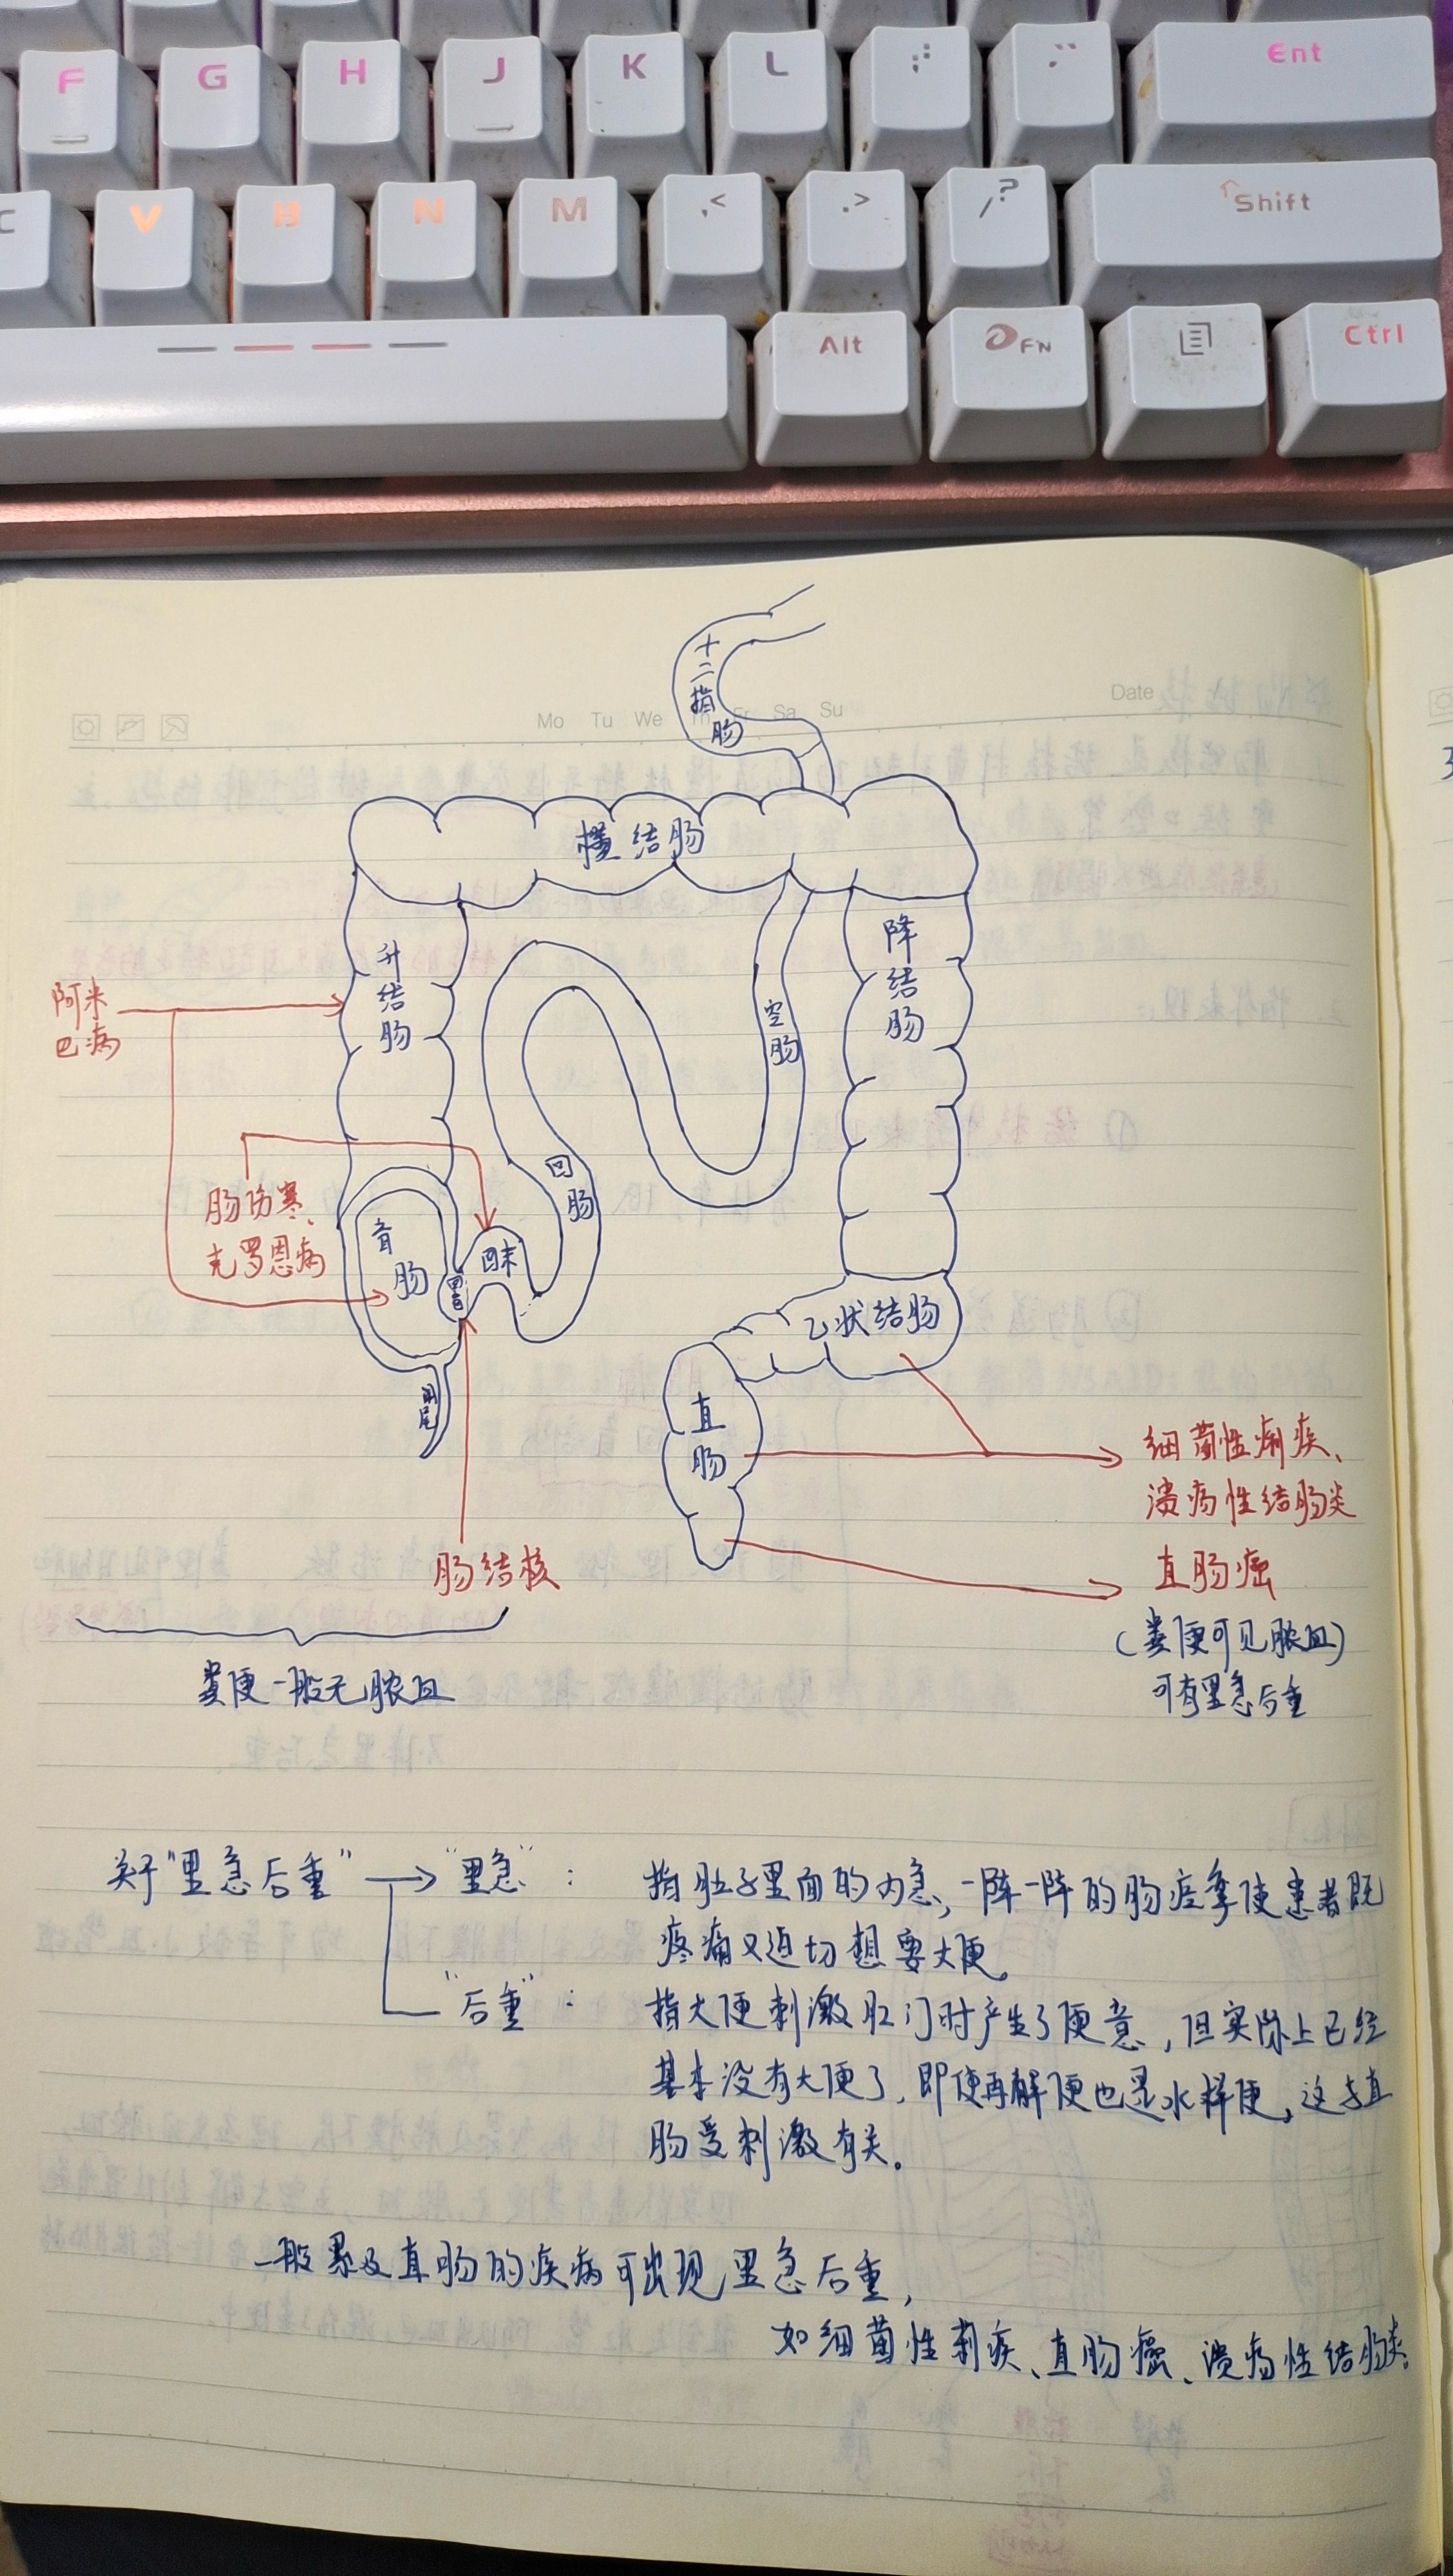 F G H J K L ; : " ' Ent
C V B N M , < . > / ? Shift
Alt FN Ctrl
十二指肠
Mo Tu We Th Fr Sa Su
Date
横结肠
升结肠
降结肠
空肠
阿米巴病
肠伤寒、
克罗恩病
回肠
盲肠
回末
回盲
乙状结肠
阑尾
直肠
细菌性痢疾、
溃疡性结肠炎
肠结核
直肠癌
(粪便可见脓血)
可有里急后重
粪便一般无脓血
关于"里急后重" → "里急": 指肚子里面的内急,一阵一阵的肠痉挛使患者既
疼痛又迫切想要大便。
"后重": 指大便刺激肛门时产生了便意,但实际上已经
基本没有大便了,即使再解便也是水样便,这与直
肠受刺激有关。
一般累及直肠的疾病可出现里急后重,
如细菌性痢疾、直肠癌、溃疡性结肠炎。